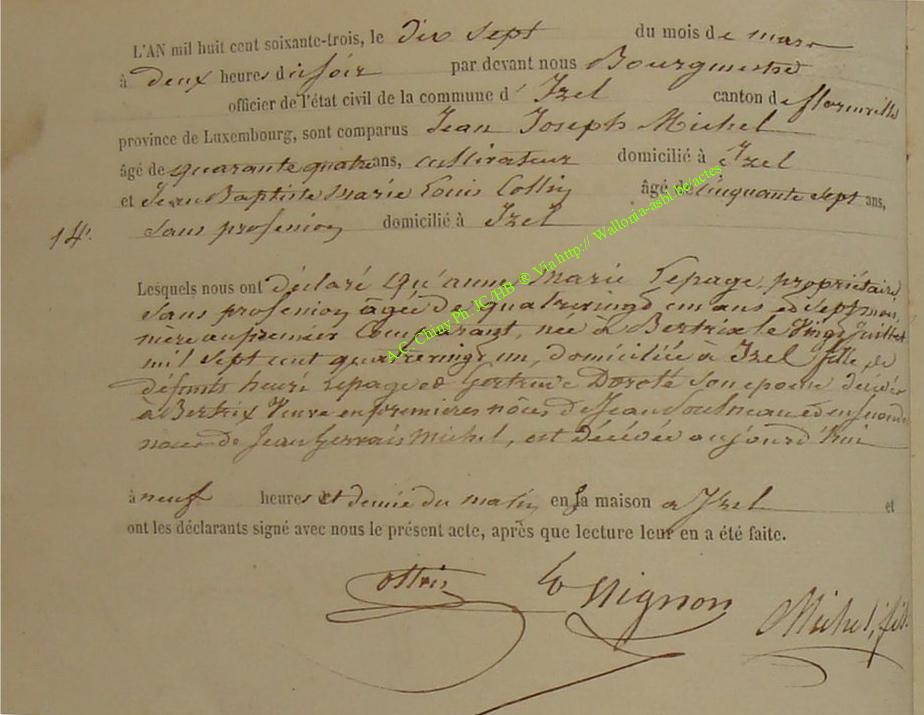 L'AN mil huit cent soixante-trois, le dix sept du mois de mars
à deux heures du soir par devant nous Bourgmestre
officier de l'état civil de la commune d' Izel canton de florenville
province de Luxembourg, sont comparus Jean Joseph Michel
âgé de quarante quatre ans, cultivateur domicilié à Izel
et Jean Baptiste Marie Louis Collin âgé de cinquante sept ans,
14. sans profession domicilié à Izel
Lesquels nous ont déclaré qu'anne Marie Lepage, propriétaire
sans profession âgée de quatrevingt un ans et sept mois,
mère au premier Comparant, née à Bertrix le Vingt Juillet
mil sept cent quatrevingt un, domiciliée à Izel fille de
défunts henri Lepage et Gertrude Doroté son epouse décédés
à Bertrix Veuve en premières nôces de Jean et en secondes
noces de Jean Gervais Michel, est décédée aujourd'hui
à neuf heures et demie du matin en sa maison à Izel et
ont les déclarants signé avec nous le présent acte, après que lecture leur en a été faite.
Mignon
Michel, fils
A.C. Chiny Ph. JC/HB ® Via http:// Wallonia-asbl.be/actes